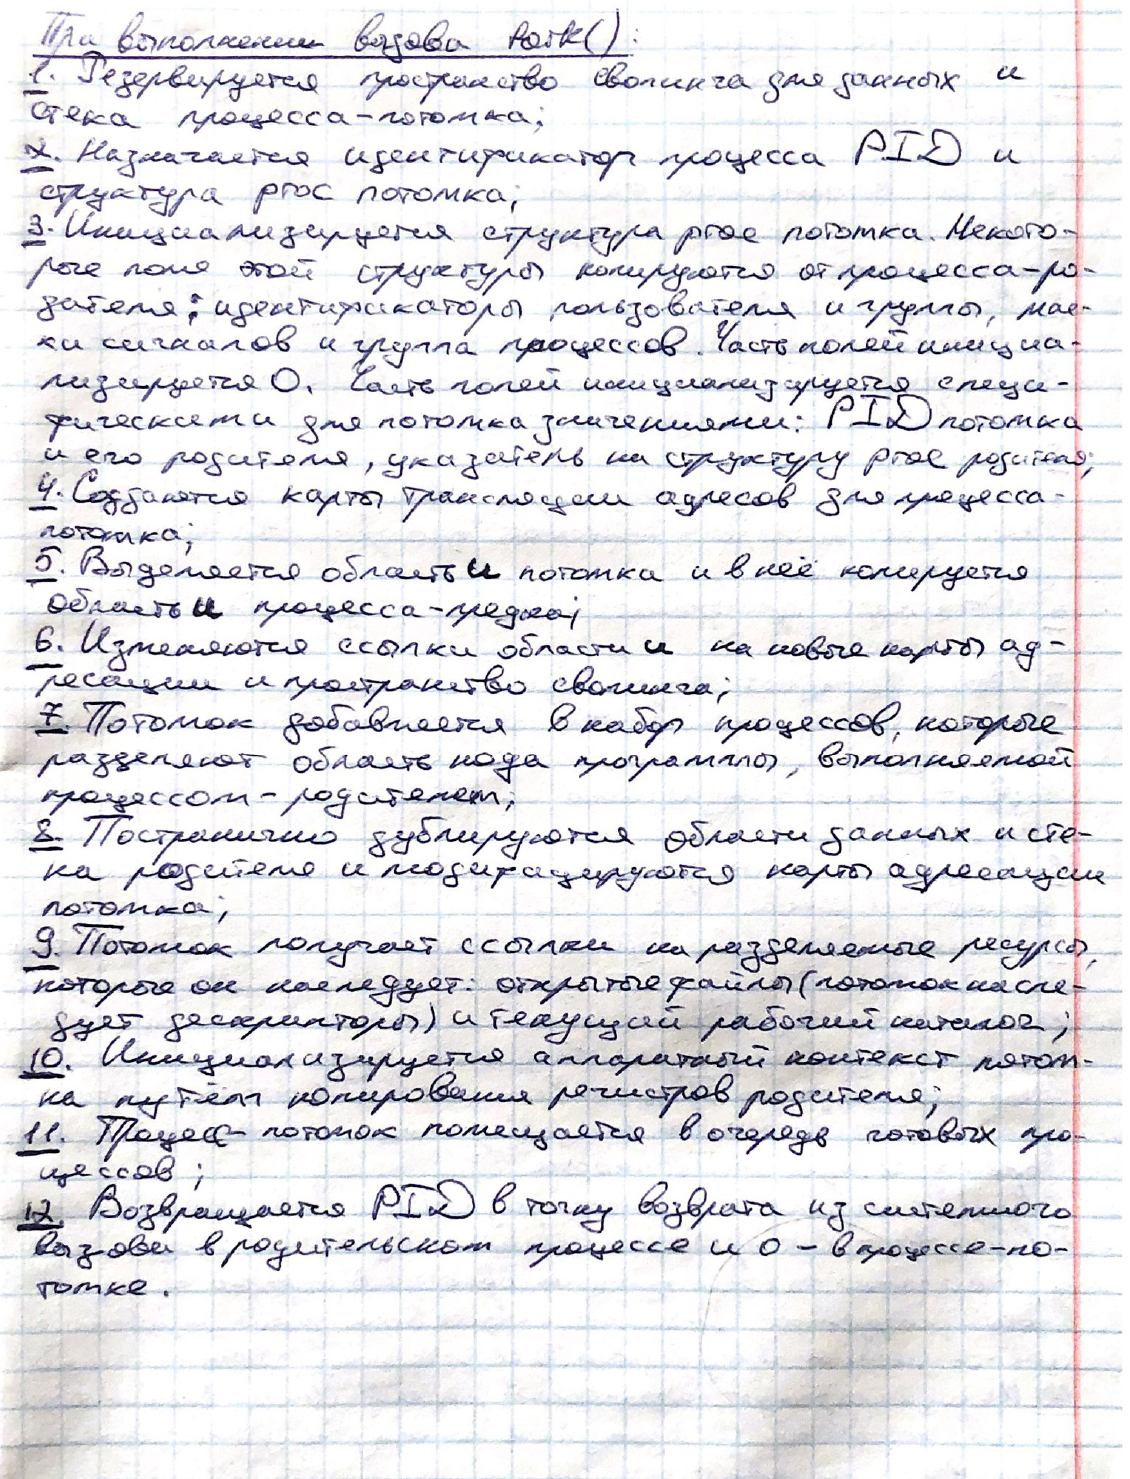 При выполнении вызова fork():
1. Резервируется пространство свопинга для данных и
стека процесса-потомка;
2. Назначается идентификатор процесса PID и
структура proc потомка;
3. Инициализируется структура proc потомка. Некото-
рые поля этой структуры копируются от процесса-ро-
дителя: идентификаторы пользователя и группы, мас-
ки сигналов и группа процессов. Часть полей инициа-
лизируется 0. Часть полей инициализируется специ-
фическими для потомка значениями: PID потомка
и его родителя, указатель на структуру proc родителя;
4. Создаются карты трансляции адресов для процесса-
потомка;
5. Выделяется область u потомка и в неё копируется
область u процесса-предка;
6. Изменяются ссылки области u на новые карты ад-
ресации и пространство свопинга;
7. Потомок добавляется в набор процессов, которые
разделяют область кода программы, выполняемой
процессом-родителем;
8. Постранично дублируются области данных и сте-
ка родителя и модифицируются карты адресации
потомка;
9. Потомок получает ссылки на разделяемые ресурсы,
которые он наследует: открытые файлы (потомок насле-
дует дескрипторы) и текущий рабочий каталог;
10. Инициализируется аппаратный контекст потом-
ка путём копирования регистров родителя;
11. Процесс-потомок помещается в очередь готовых про-
цессов;
12. Возвращается PID в точку возврата из системного
вызова в родительском процессе и 0 - в процессе-по-
томке.